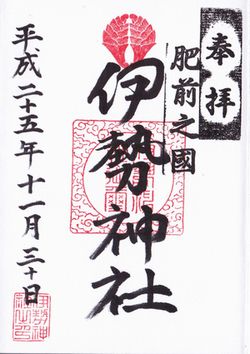 奉拝
肥前之國
伊勢神社
平成二十五年十一月三十日